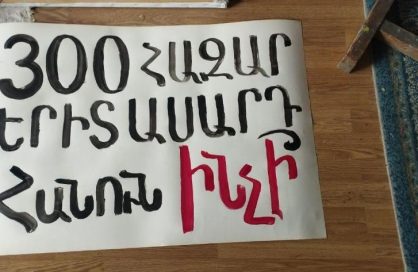 300 ՀԱԶԱՐ
ԵՐԻՏԱՍԱՐԴ
ՀԱՆՈՒՆ ԻՆՉԻ՞